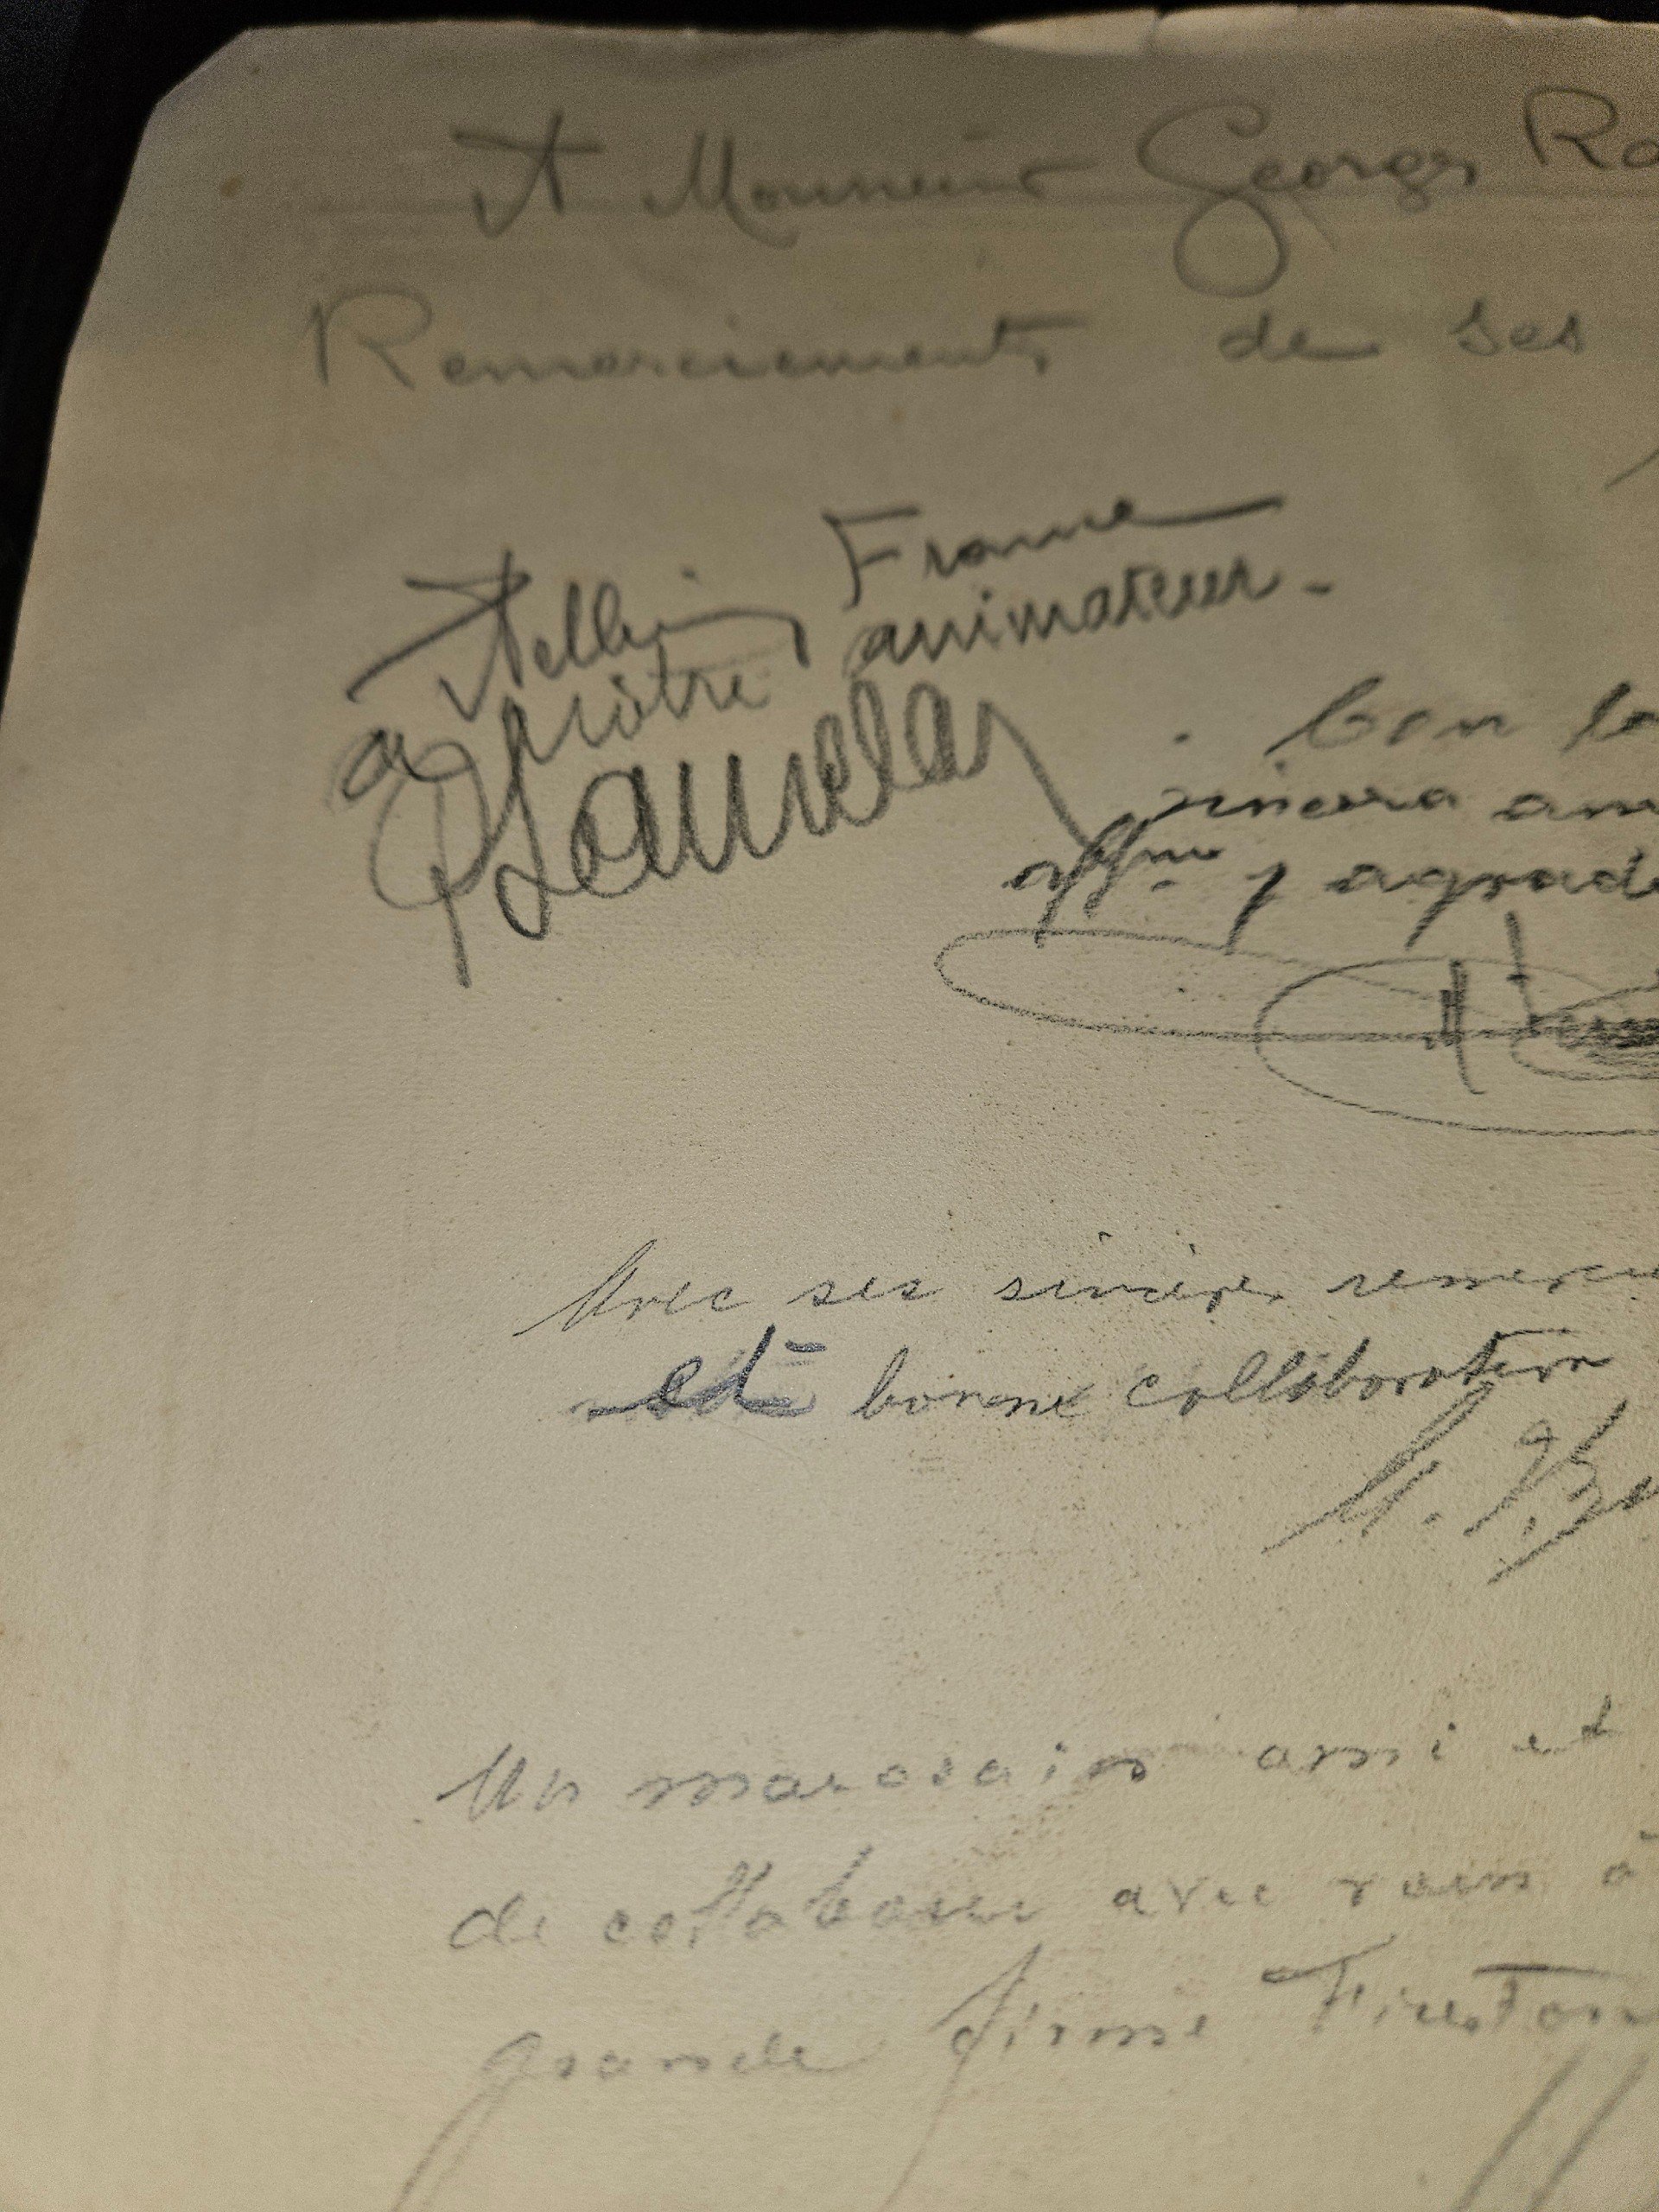 A Monsieur Georges Ro
Remerciements de ses
France
a notre animateur -
Con
sincera am
y agrade
Avec ses sincères remercie
et bonne collaboration
Un marocain ami et
de collaborer avec vous à
grande firme Firestone